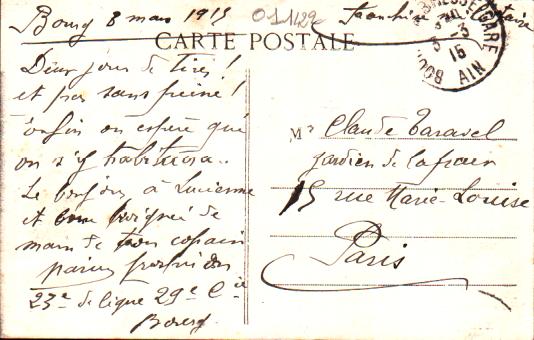 Bourg 8 mars 1915
011429
Franchise militaire
CARTE POSTALE
BOURG
GARE
8-3
15
AIN
Deux jours de tires !
et pas sans peine !
enfin on espère que
on s'y habituera..
Le bonjour à Lucienne
et bonne poignée de
main de ton copain
23e de ligne 29e Cie
Bourg
Mr Claude Taravel
gardien de la paix
15 rue Marie-Louise
Paris